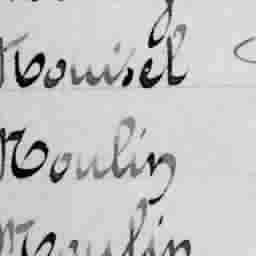 Mouisel
Moulin
Moulin